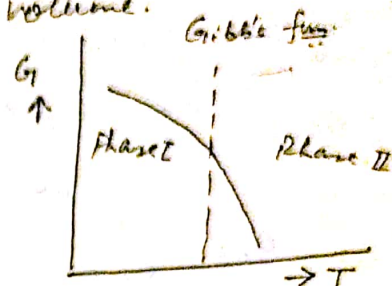 volume.
Gibb's fun.
G
↑
Phase I
Phase II
→ T